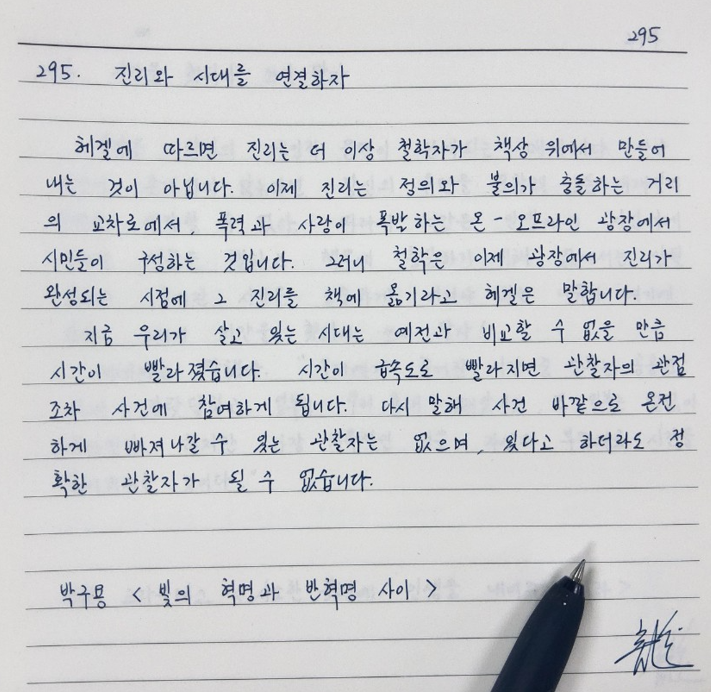 295
295. 진리와 시대를 연결하자
헤겔에 따르면 진리는 더 이상 철학자가 책상 위에서 만들어
내는 것이 아닙니다. 이제 진리는 정의와 불의가 충돌하는 거리
의 교차로에서 폭력과 사랑이 폭발하는 온-오프라인 광장에서
시민들이 구성하는 것입니다. 그러니 철학은 이제 광장에서 진리가
완성되는 시점에 그 진리를 책에 옮기라고 헤겔은 말합니다.
지금 우리가 살고 있는 시대는 예전과 비교할 수 없을 만큼
시간이 빨라졌습니다. 시간이 급속도로 빨라지면 관찰자의 관점
조차 사건에 참여하게 됩니다. 다시 말해 사건 바깥으로 온전
하게 빠져나갈 수 있는 관찰자는 없으며, 있다고 하더라도 정
확한 관찰자가 될 수 없습니다.
박구용 < 빛의 혁명과 반혁명 사이 >